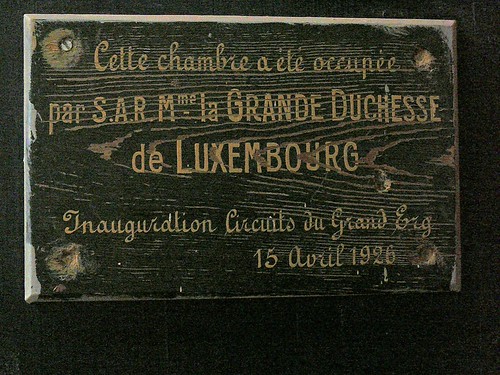 Cette chambre a été occupée
par S.A.R Mme la GRANDE DUCHESSE
de LUXEMBOURG
Inauguration Circuits du Grand Erg
15 Avril 1926